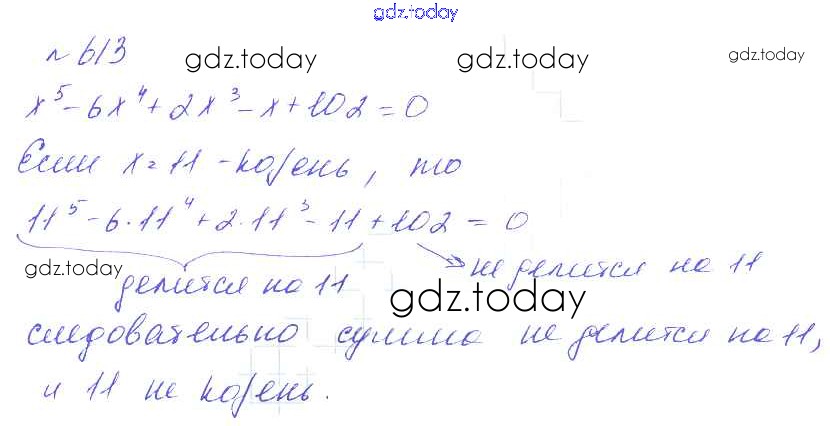 gdz.today
№ 613
gdz.today gdz.today gdz.today
x⁵ - 6x⁴ + 2x³ - x + 102 = 0
Если x = 11 - корень, то
11⁵ - 6·11⁴ + 2·11³ - 11 + 102 = 0
gdz.today делится на 11 → не делится на 11
gdz.today
следовательно сумма не делится на 11,
и 11 не корень.